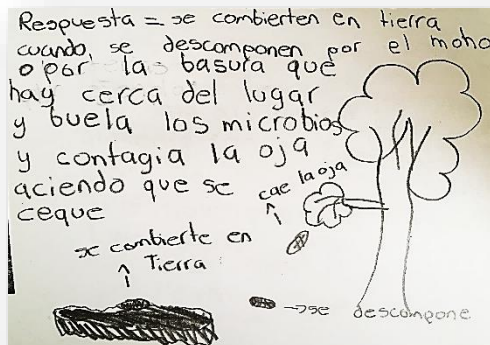 Respuesta = se combierten en tierra
cuando, se descomponen por el moho
o por la basura que
hay cerca del lugar
y buela los microbios
y contagia la oja
aciendo que se
ceque
cae la oja
se combierte en
Tierra
→se descompone